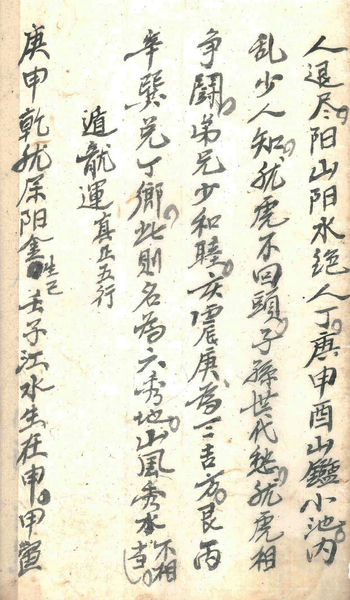 人退尽阳山阳水绝人丁庚申酉山鑑小池内
乱少人知龙虎不回頭子孫世代愁龙虎相
争鬪弟兄少和睦亥震庚為三吉方艮丙
辛巽兑丁鄉此則名為六秀地山風秀水不相
遁龍運真正五行
庚申乾兑属阳金生巳壬子江水生在申甲寅